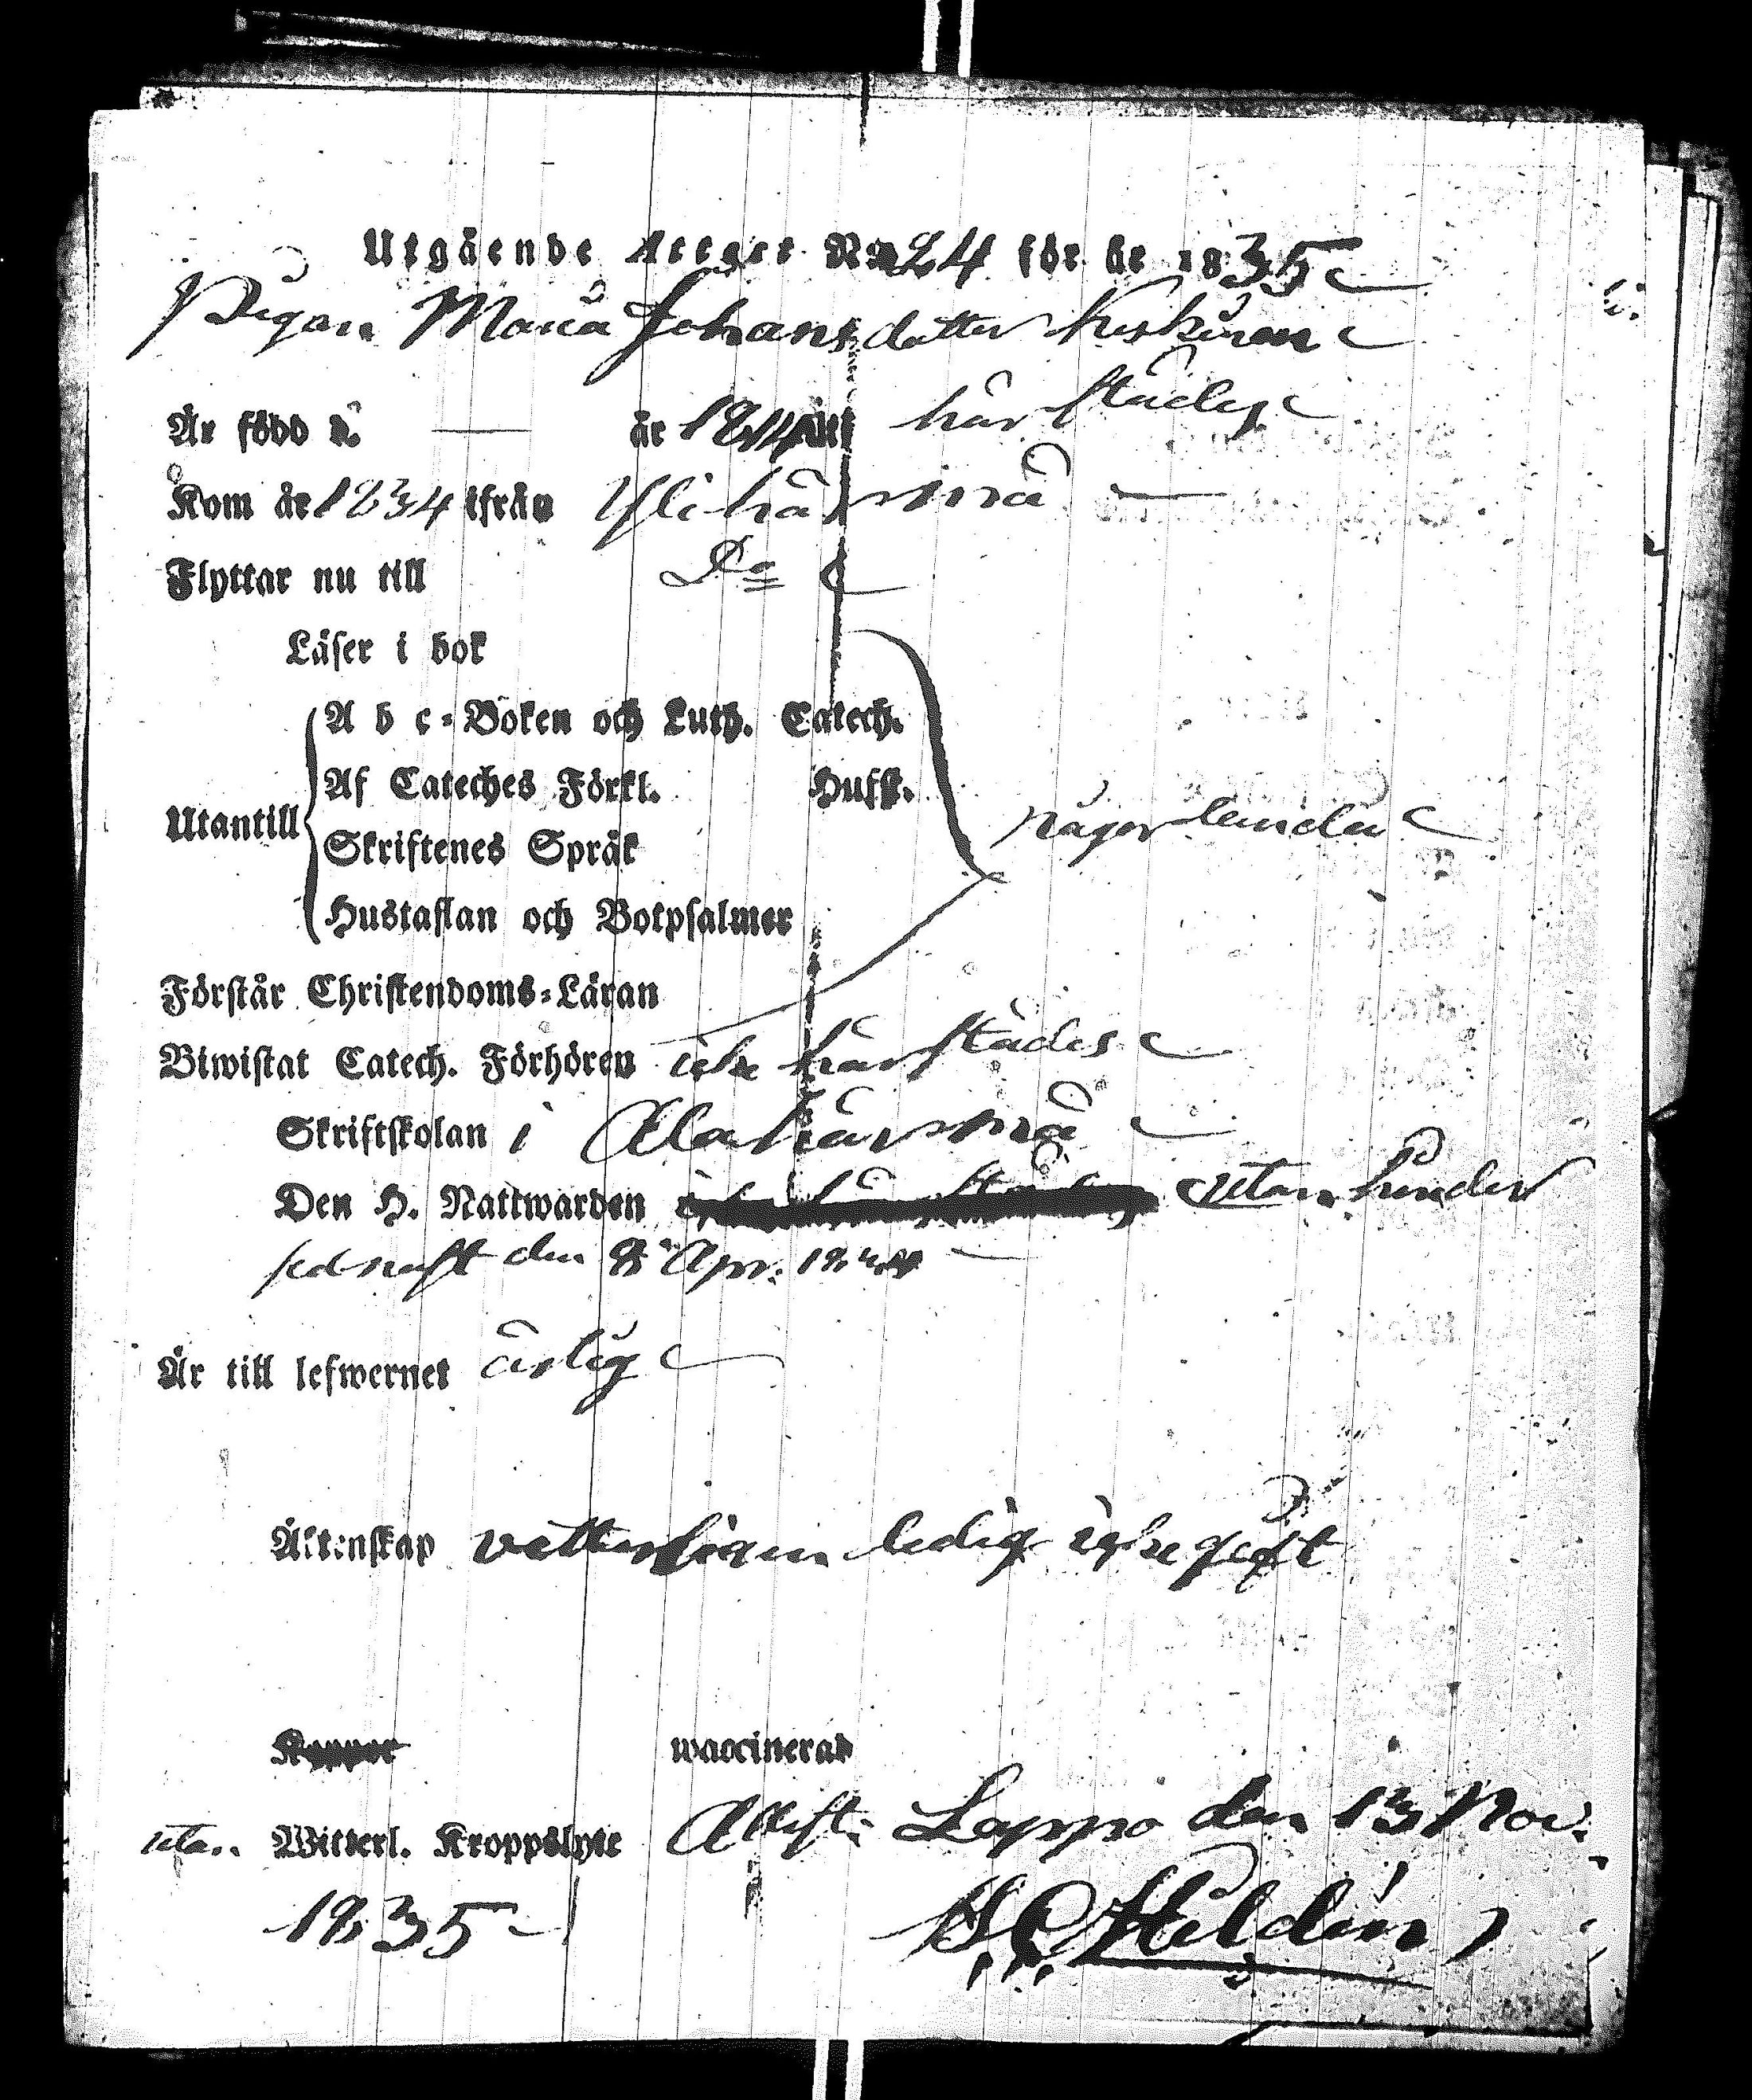 Utgående Attest No 24 för år 1835
Pigan Maria Johansdotter Keskinen
Är född d. — år 1814 uti härstädes
Kom år 1834 ifrån Ylihärmä —
Flyttar nu till Do
Läser i bok
A b c-Boken och Luth. Catech.
Af Cateches Förkl. Husst.
Utantill någorlunda
Skriftenes Språk
Hustaflan och Botpsalmer
Förstår Christendoms-Läran
Biwistat Catech. Förhören icke härstädes
Skriftskolan i Alahärmä
Den H. Nattwarden utan hinder
sednast den Apr:
Är till lefwernet ärlig
Äktenskap ledig icke gift
Koppor waccinerad
utan Witterl. Kroppslyte Attest: Lappo den 13 Nov.
1835
Heldén